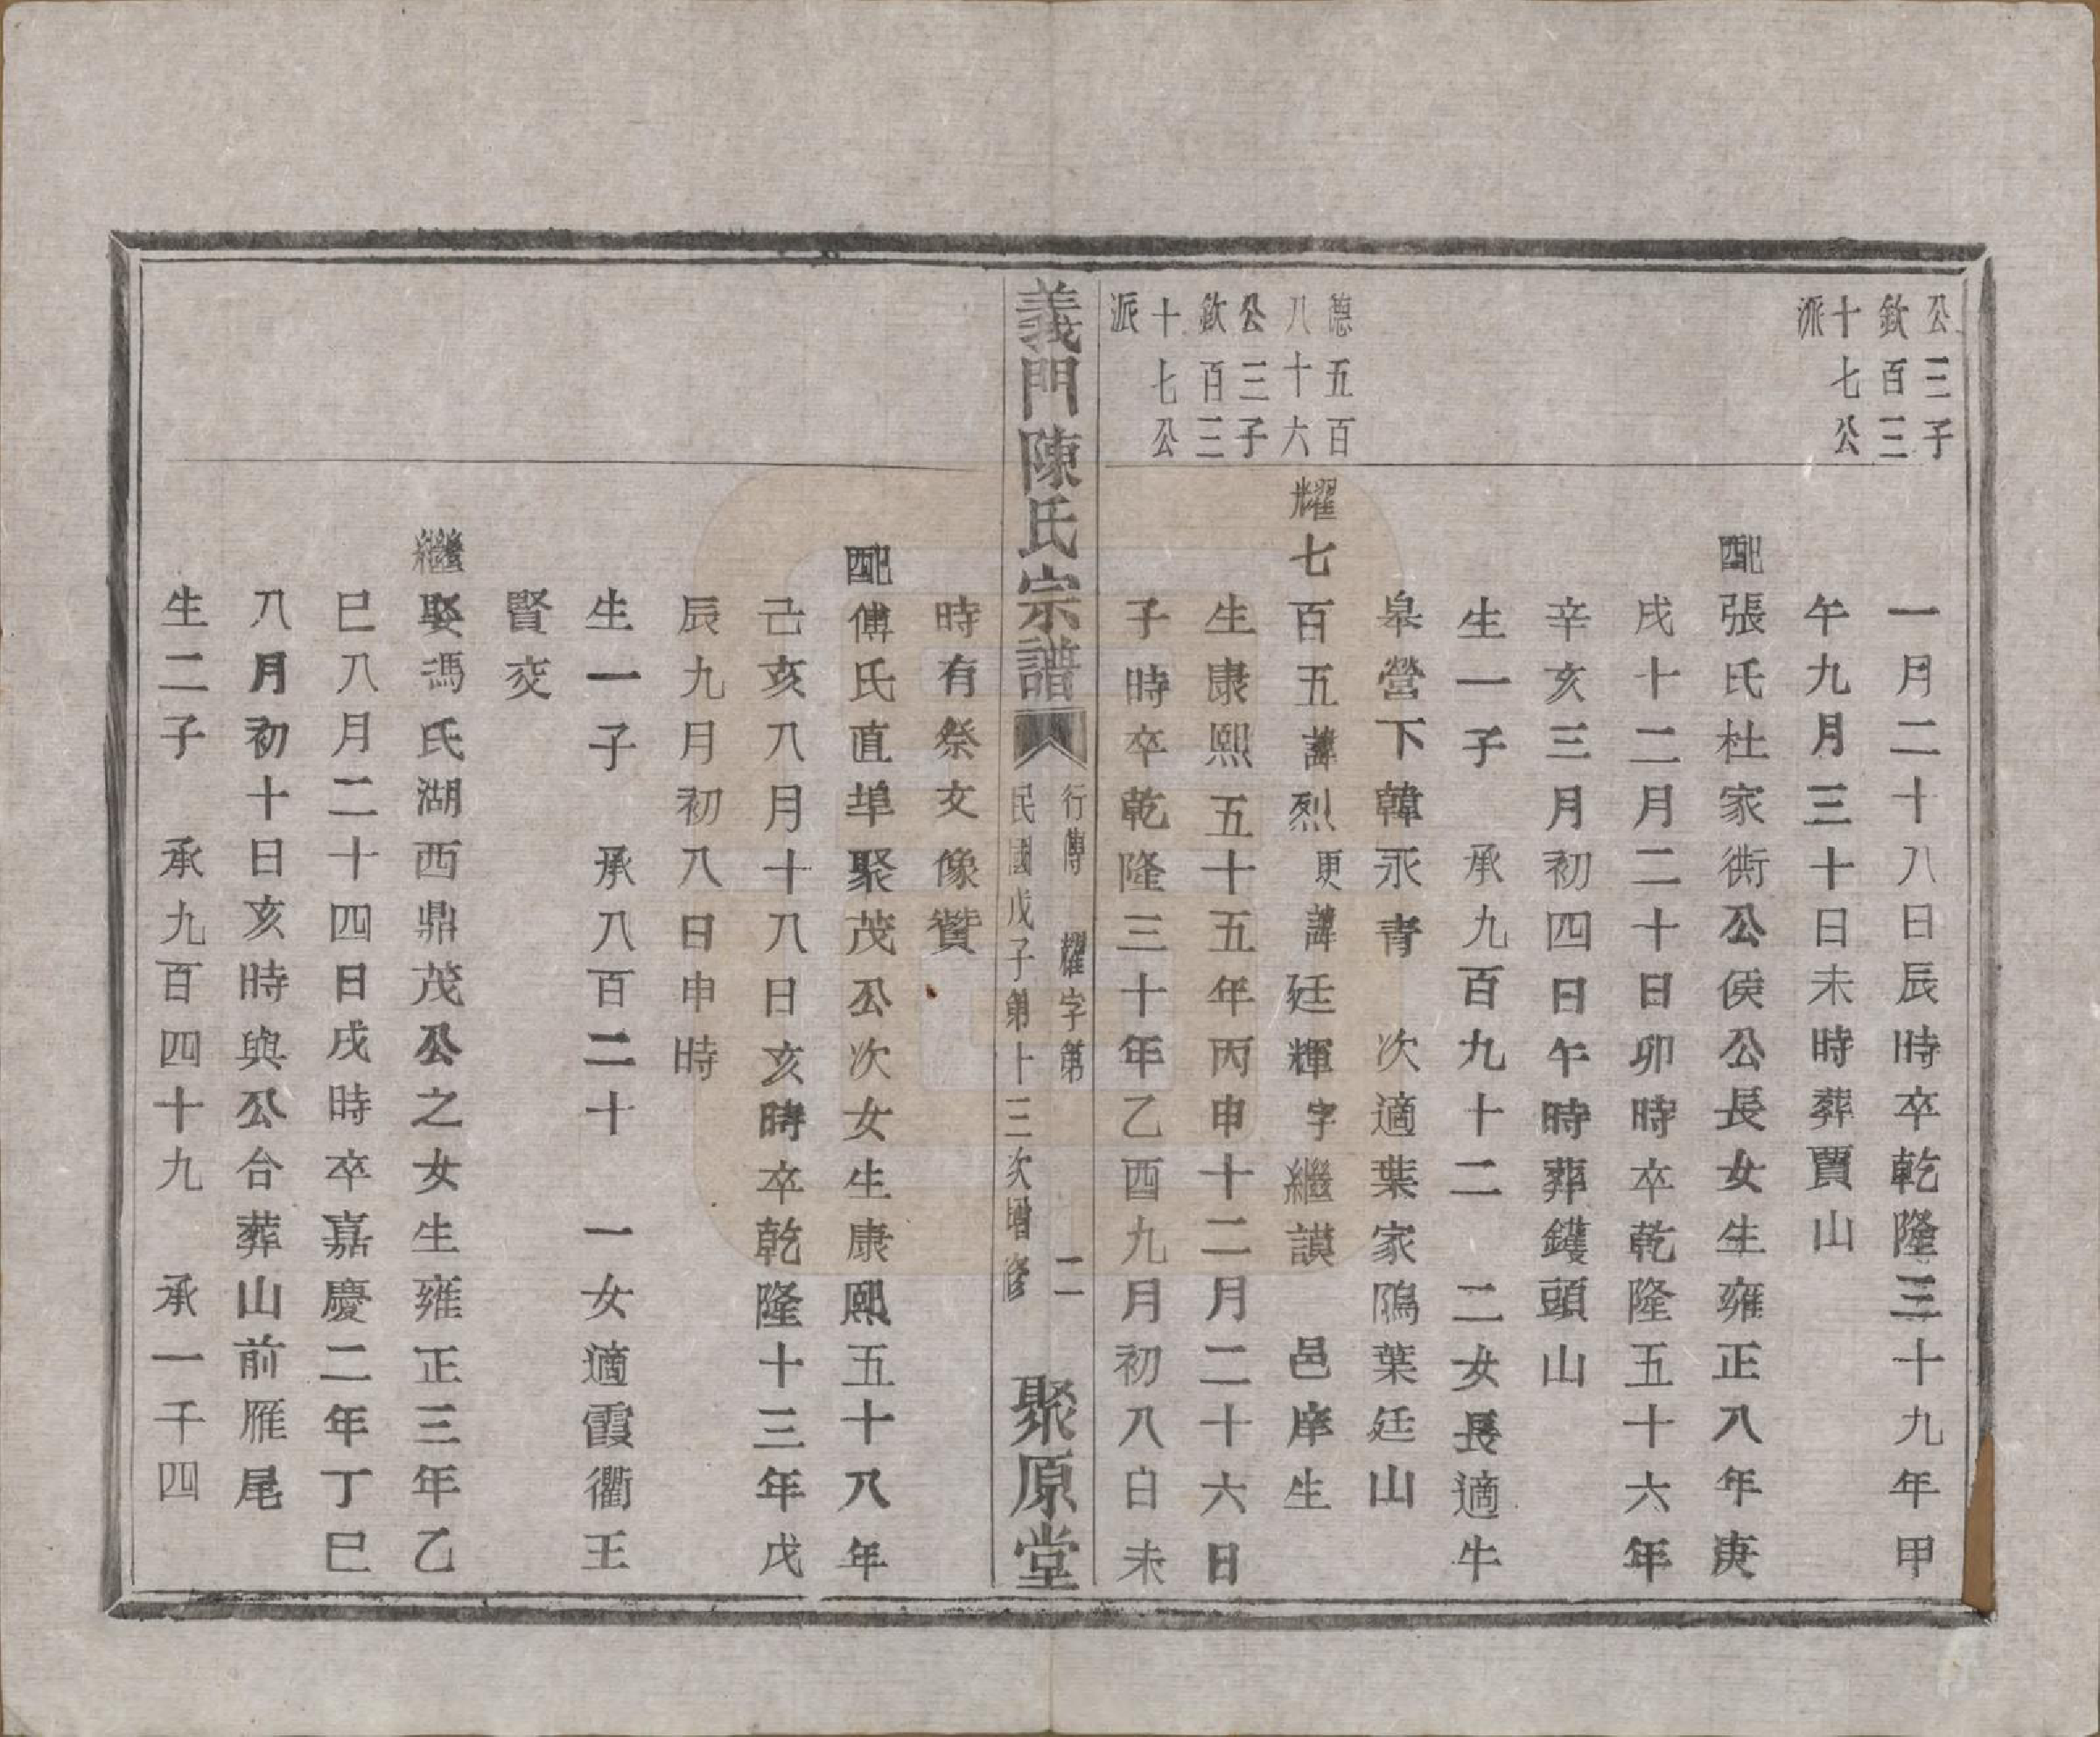 公三子
欽百三
十七公
派
一月二十八日辰時卒乾隆三十九年甲
午九月三十日未時葬賈山
配張氏杜家衖公侯公長女生雍正八年庚
戌十二月二十日卯時卒乾隆五十六年
辛亥三月初四日午時葬鑊頭山
生一子　承九百九十二　二女長適牛
皋營下韓永青　次適葉家隖葉廷山
德五百
八十六
公三子
欽百三
十七公
派
耀七百五諱烈更諱廷輝字繼謨　邑庠生
生康熙五十五年丙申十二月二十六日
子時卒乾隆三十年乙酉九月初八日未
義門陳氏宗譜
行傳　耀字第　二
民國戊子第十三次增修
聚原堂
時有祭文像贊
配傅氏直埠聚茂公次女生康熙五十八年
己亥八月十八日亥時卒乾隆十三年戊
辰九月初八日申時
生一子　承八百二十　一女適霞衢王
賢交
繼娶馮氏湖西鼎茂公之女生雍正三年乙
巳八月二十四日戌時卒嘉慶二年丁巳
八月初十日亥時與公合葬山前雁尾
生二子　承九百四十九　承一千四